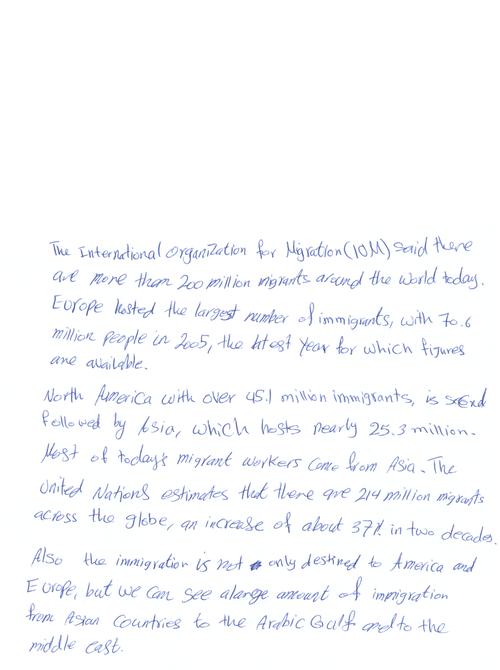 The International Organization for Migration (IOM) said there
are more than 200 million migrants around the world today.
Europe hosted the largest number of immigrants, with 70.6
million people in 2005, the latest year for which figures
are available.
North America with over 45.1 million immigrants, is second
followed by Asia, which hosts nearly 25.3 million.
Most of today's migrant workers come from Asia. The
United Nations estimates that there are 214 million migrants
across the globe, an increase of about 37% in two decades.
Also the immigration is not only destined to America and
Europe, but we can see a large amount of immigration
from Asian Countries to the Arabic Gulf and to the
middle east.